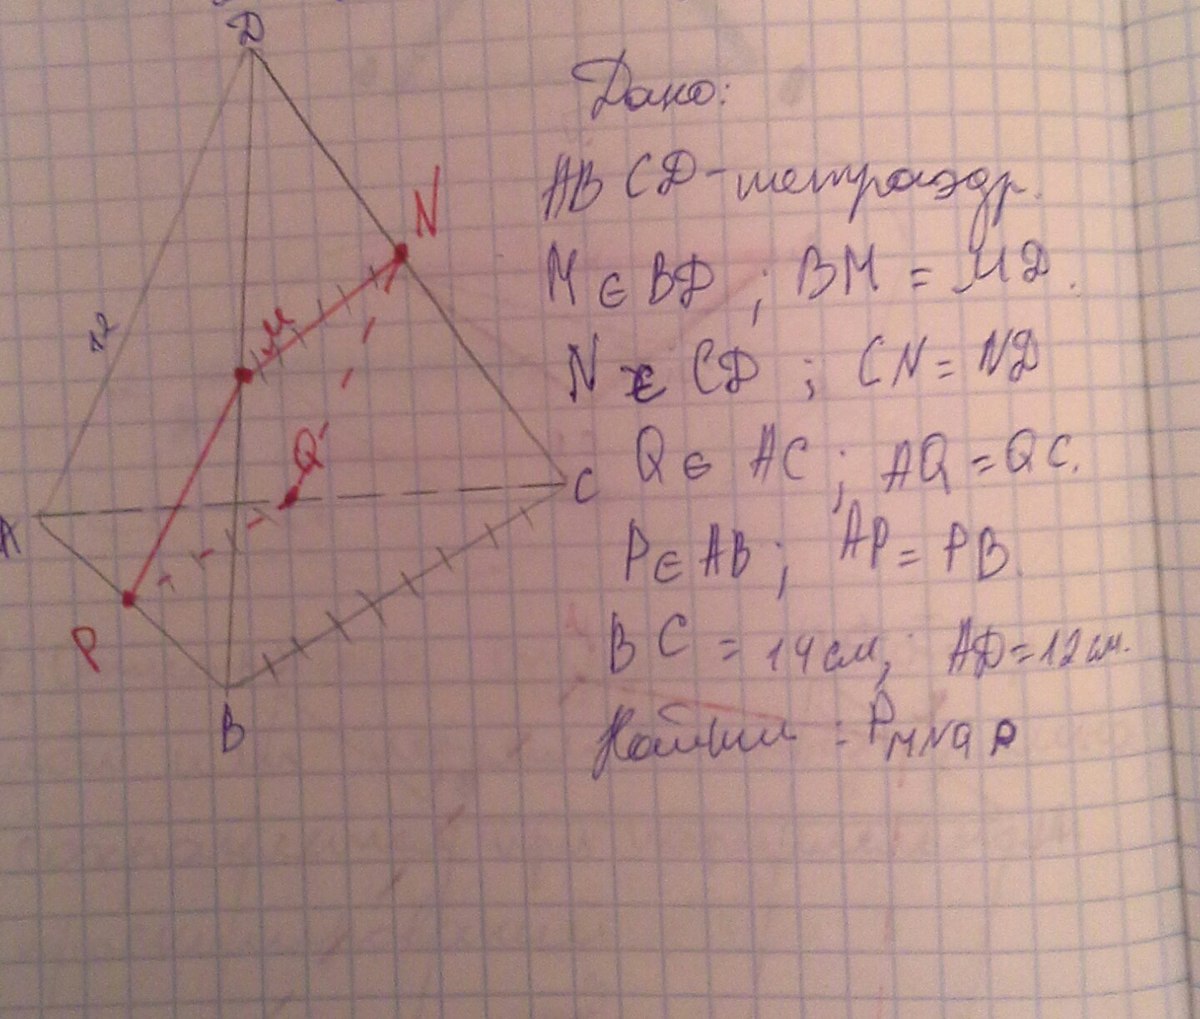 D
Дано:
ABCD - тетраэдр.
N
M ∈ BD ; BM = MD.
12
M
N ∈ CD ; CN = ND
Q
Q ∈ AC ; AQ = QC.
C
A
P ∈ AB ; AP = PB.
P
BC = 14 см; AD = 12 см.
B
Найти : P MNQP